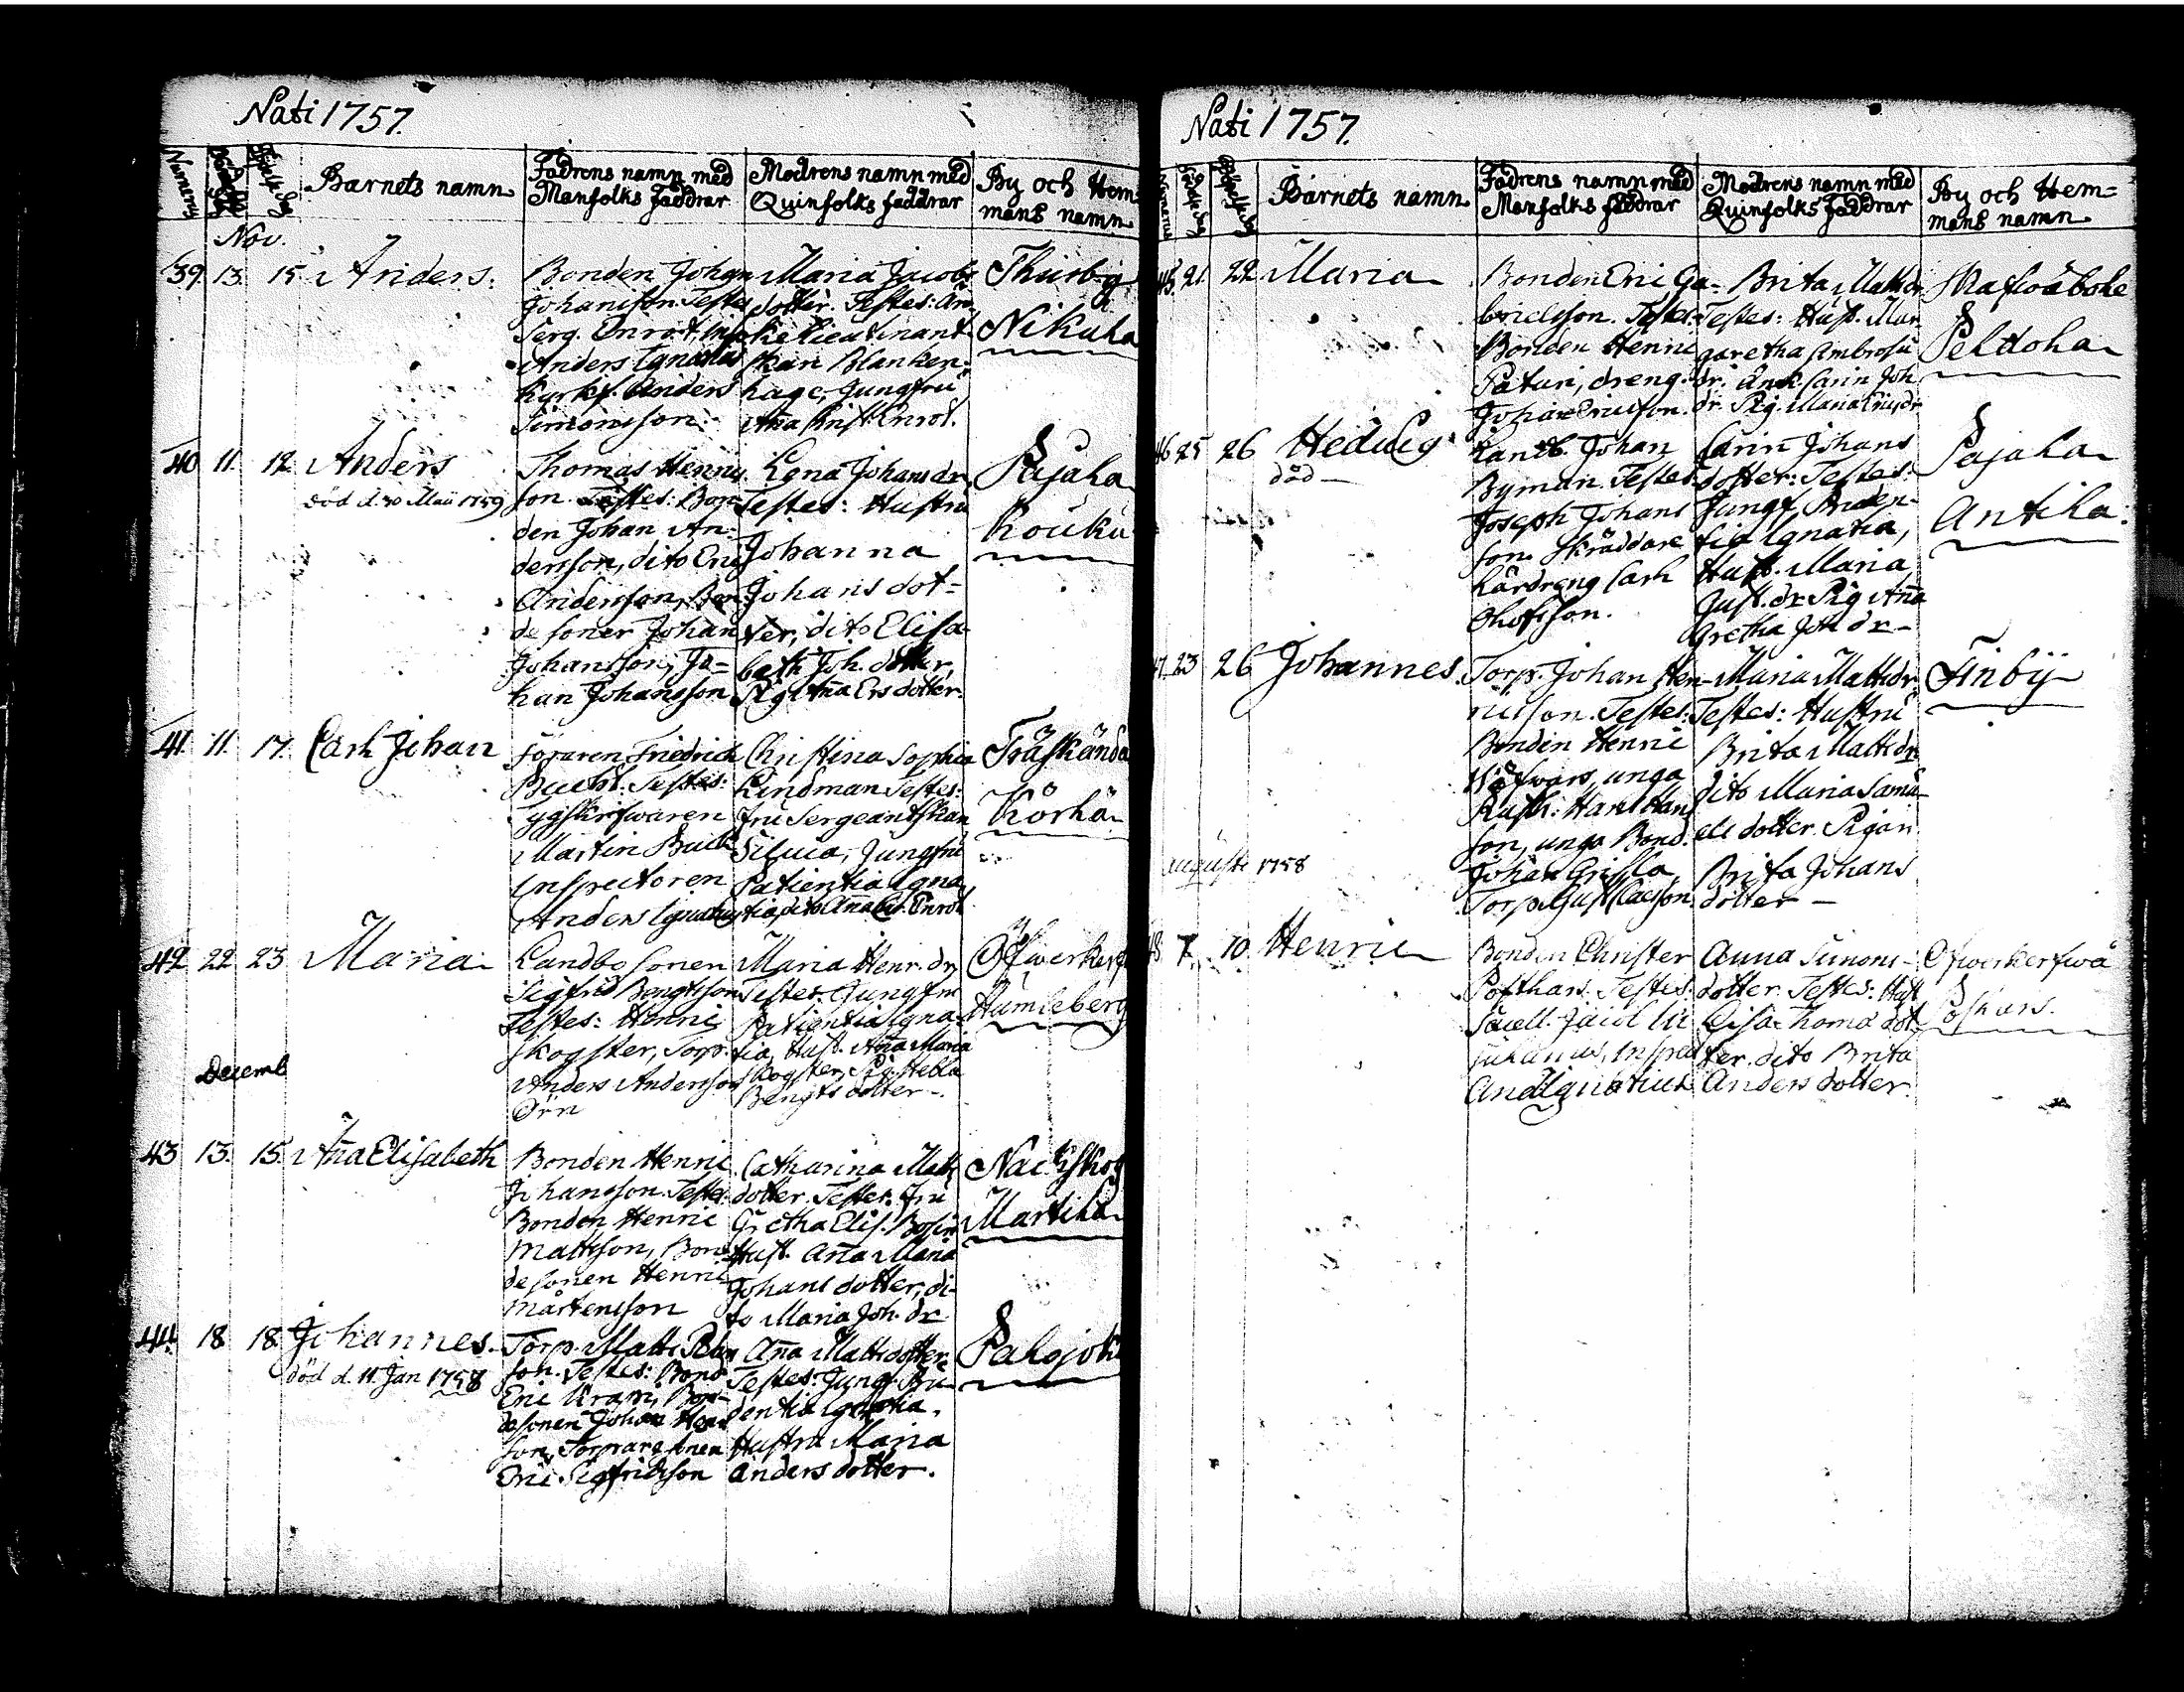 Nati 1757.
Numerus
Födelse dag
Barnets namn
Fadrens namn med
Manfolks faddrar
Modrens namn med
Quinfolks faddrar
By och Hem-
mans namn
Nov.
39. 13. 15 Anders.
Bonden Johan
Johansson. Testes
Serg. Enrot, Insp.
Anders Ignatius
Kyrkf. Anders
Simonsson.
Maria Jacobs
dotter. Testes: Fru
Lieutinant
skan Blanken-
hage, Jungfru
Aña Christ. Enrot.
Thusby
Nikula
40 11. 12. Anders
död d. 30 Maii 1759
Thomas Henrics
son. Testes: Bon-
den Johan An-
dersson, dito Eric
Andersson, Bon
desoner Johan
Johansson, Jo-
han Johansson
Lena Johans dr
Testes: Hustru
Johanna
Johans dot-
ter, dito Elisa-
beth Joh. dotter,
Pig. Aña Ers dotter.
Pajala
Kouku
41. 11. 17. Carl Johan
Föraren Friedrich
Bucht. Testes:
Tygskrifwaren
Martin Bucht
Inspectoren
Anders Ignatius
Christina Sophia
Lindman Testes:
fru Sergeantskan
Silvia, Jungfru
Patientia Igna
tia, dito Aña Chr. Enrot
Träskända
Körhä
42 22 23 Maria
Landbo sonen
Sigfrid Bengtsson
Testes: Henric
Skogster, Torp.
Anders Andersson
Örn
Maria Henr. dr,
Testes: Jungfru
Patientia Igna-
tia, Hust. Aña Maria
Skogster, Pig. Hebla
Bengts dotter.
Humleberg
Decemb
43 13. 15. Aña Elisabeth
Bonden Henric
Johansson. Testes:
Bonden Henric
Mattsson, Bon-
desonen Henric
Mårtensson
Catharina Matts
dotter. Testes: Fru
Gretha Elis. Bosin
Hust. Aña Maria
Johans dotter, di-
to Maria Joh. dr
Nackskog
Martila
44. 18 18. Johannes.
död d. 11. Jan 1758
Torp. Matts
son. Testes: Bond
Eric Uram, Bon-
desonen Johan Henr
son, Torpare sonen
Eric Sigfridsson
Aña Matts dotter
Testes: Jungf. Pru-
dentia Ignatia.
Hustru Maria
Anders dotter.
Palojoki
Nati 1757.
Numerus
Födelse dag
Barnets namn
Fadrens namn med
Manfolks faddrar
Modrens namn med
Quinfolks faddrar
By och Hem-
mans namn
45. 21. 22 Maria
Bonden Eric Ga-
brielsson. Testes:
Bonden Henric
Paturi, dreng.
Johan Ericsson.
Brita Matts dr
Testes: Hust. Mar
garetha Ambrosii
dr. Änk. Carin Joh
dr. Pig. Maria Erics dr
Peldola
46 25 26 Hedwig
död
Landb. Johan
Byman. Testes:
Joseph Johans
son. Skräddare
Lärdreng Carl
Olofsson.
Carin Johans
dotter: Testes:
Jungf. Pruden-
tia Ignatia,
Hust. Maria
Gust. dr Pig Aña
Gretha Joh dr
Pajala
Antila.
47. 23 26 Johannes.
Torp. Johan Hen-
ricsson. Testes:
Bonden Henric
unga
Rusth: Hans Hans
son, unga Bond.
Johan Grissla
Torp. Gust Claesson
Maria Matts dr
Testes: Hustru
Brita Matts dr
dito Maria Samu-
els dotter. Pigan
Brita Johans
dotter
Finby
Augusti 1758
48. 7. 10. Henric
Bonden Christer
Poffhars. Testes:
Sacell. Jacob
Inspect
And Ignatius
Anna Simons-
dotter. Testes: Hust
Lisa Thomæ dot
ter. dito Brita
Anders dotter.
Ofwerkerfwä